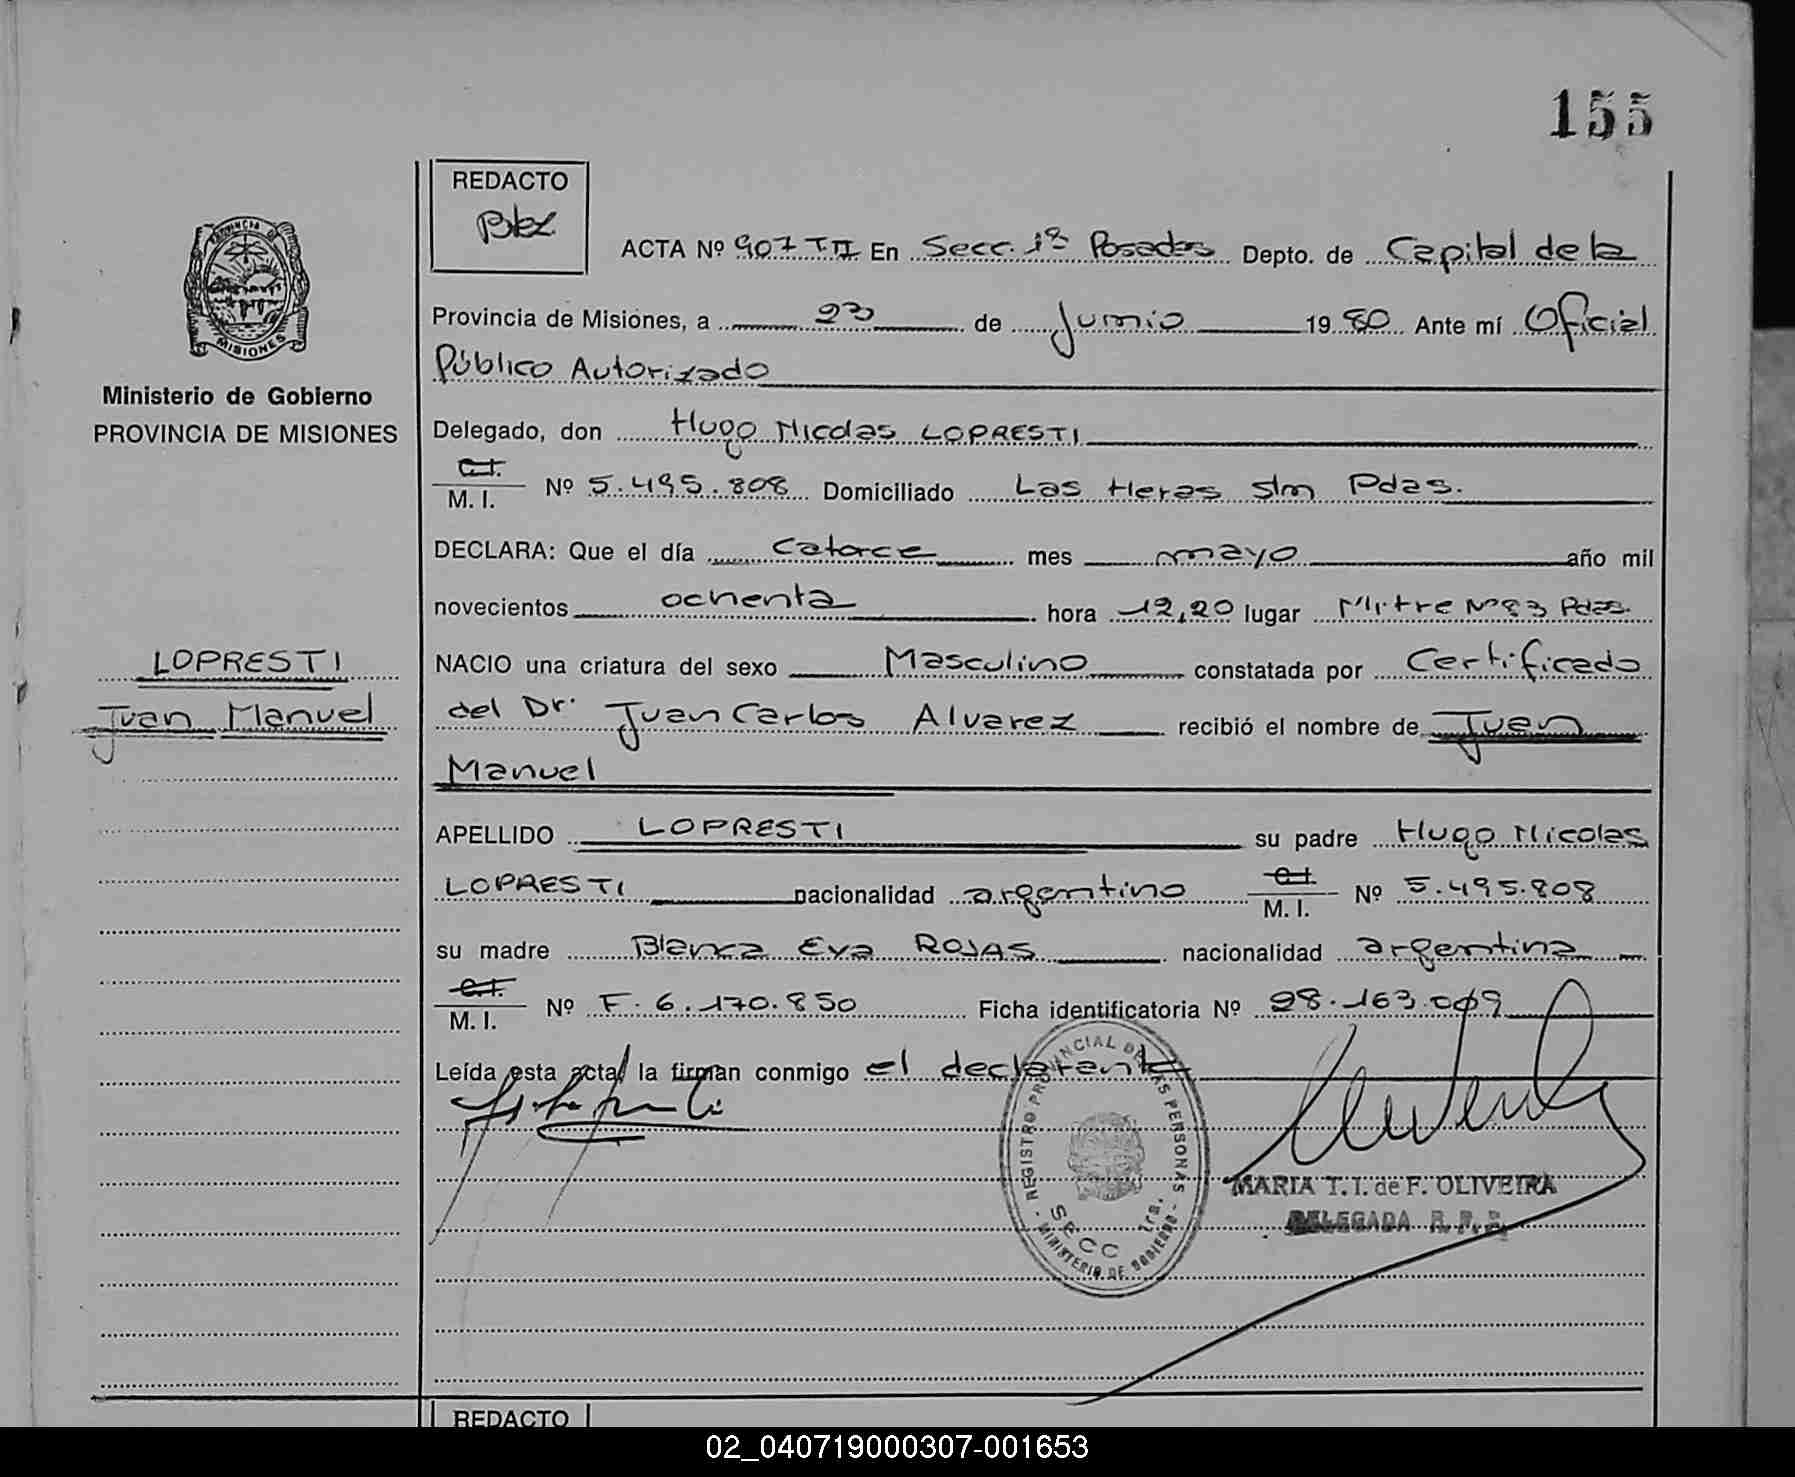 155
REDACTO
ACTA Nº 907 T II En Secc. 1ª Posadas Depto. de Capital de la
Provincia de Misiones, a 23 de Junio 1980 Ante mí Oficial
Público Autorizado
PROVINCIA DE
MISIONES
Ministerio de Gobierno
PROVINCIA DE MISIONES
Delegado, don Hugo Nicolas LOPRESTI
C.I.
M. I. Nº 5.495.808 Domiciliado Las Heras s/n Pdas.
DECLARA: Que el día catorce mes mayo año mil
novecientos ochenta hora 12,20 lugar Mitre Nº 83 Pdas.
LOPRESTI
Juan Manuel
NACIO una criatura del sexo Masculino constatada por Certificado
del Dr. Juan Carlos Alvarez recibió el nombre de Juan
Manuel
APELLIDO LOPRESTI su padre Hugo Nicolas
LOPRESTI nacionalidad argentino C.I. M. I. Nº 5.495.808
su madre Blanca Eva ROJAS nacionalidad argentina
C.I.
M. I. Nº F. 6.170.850 Ficha identificatoria Nº 28.163.069
Leída esta acta, la firman conmigo el declarante
REGISTRO PROVINCIAL DE LAS PERSONAS
SECC 1ra.
MINISTERIO DE GOBIERNO
MARIA T. I. de F. OLIVEIRA
DELEGADA R. P. P.
REDACTO
02_040719000307-001653